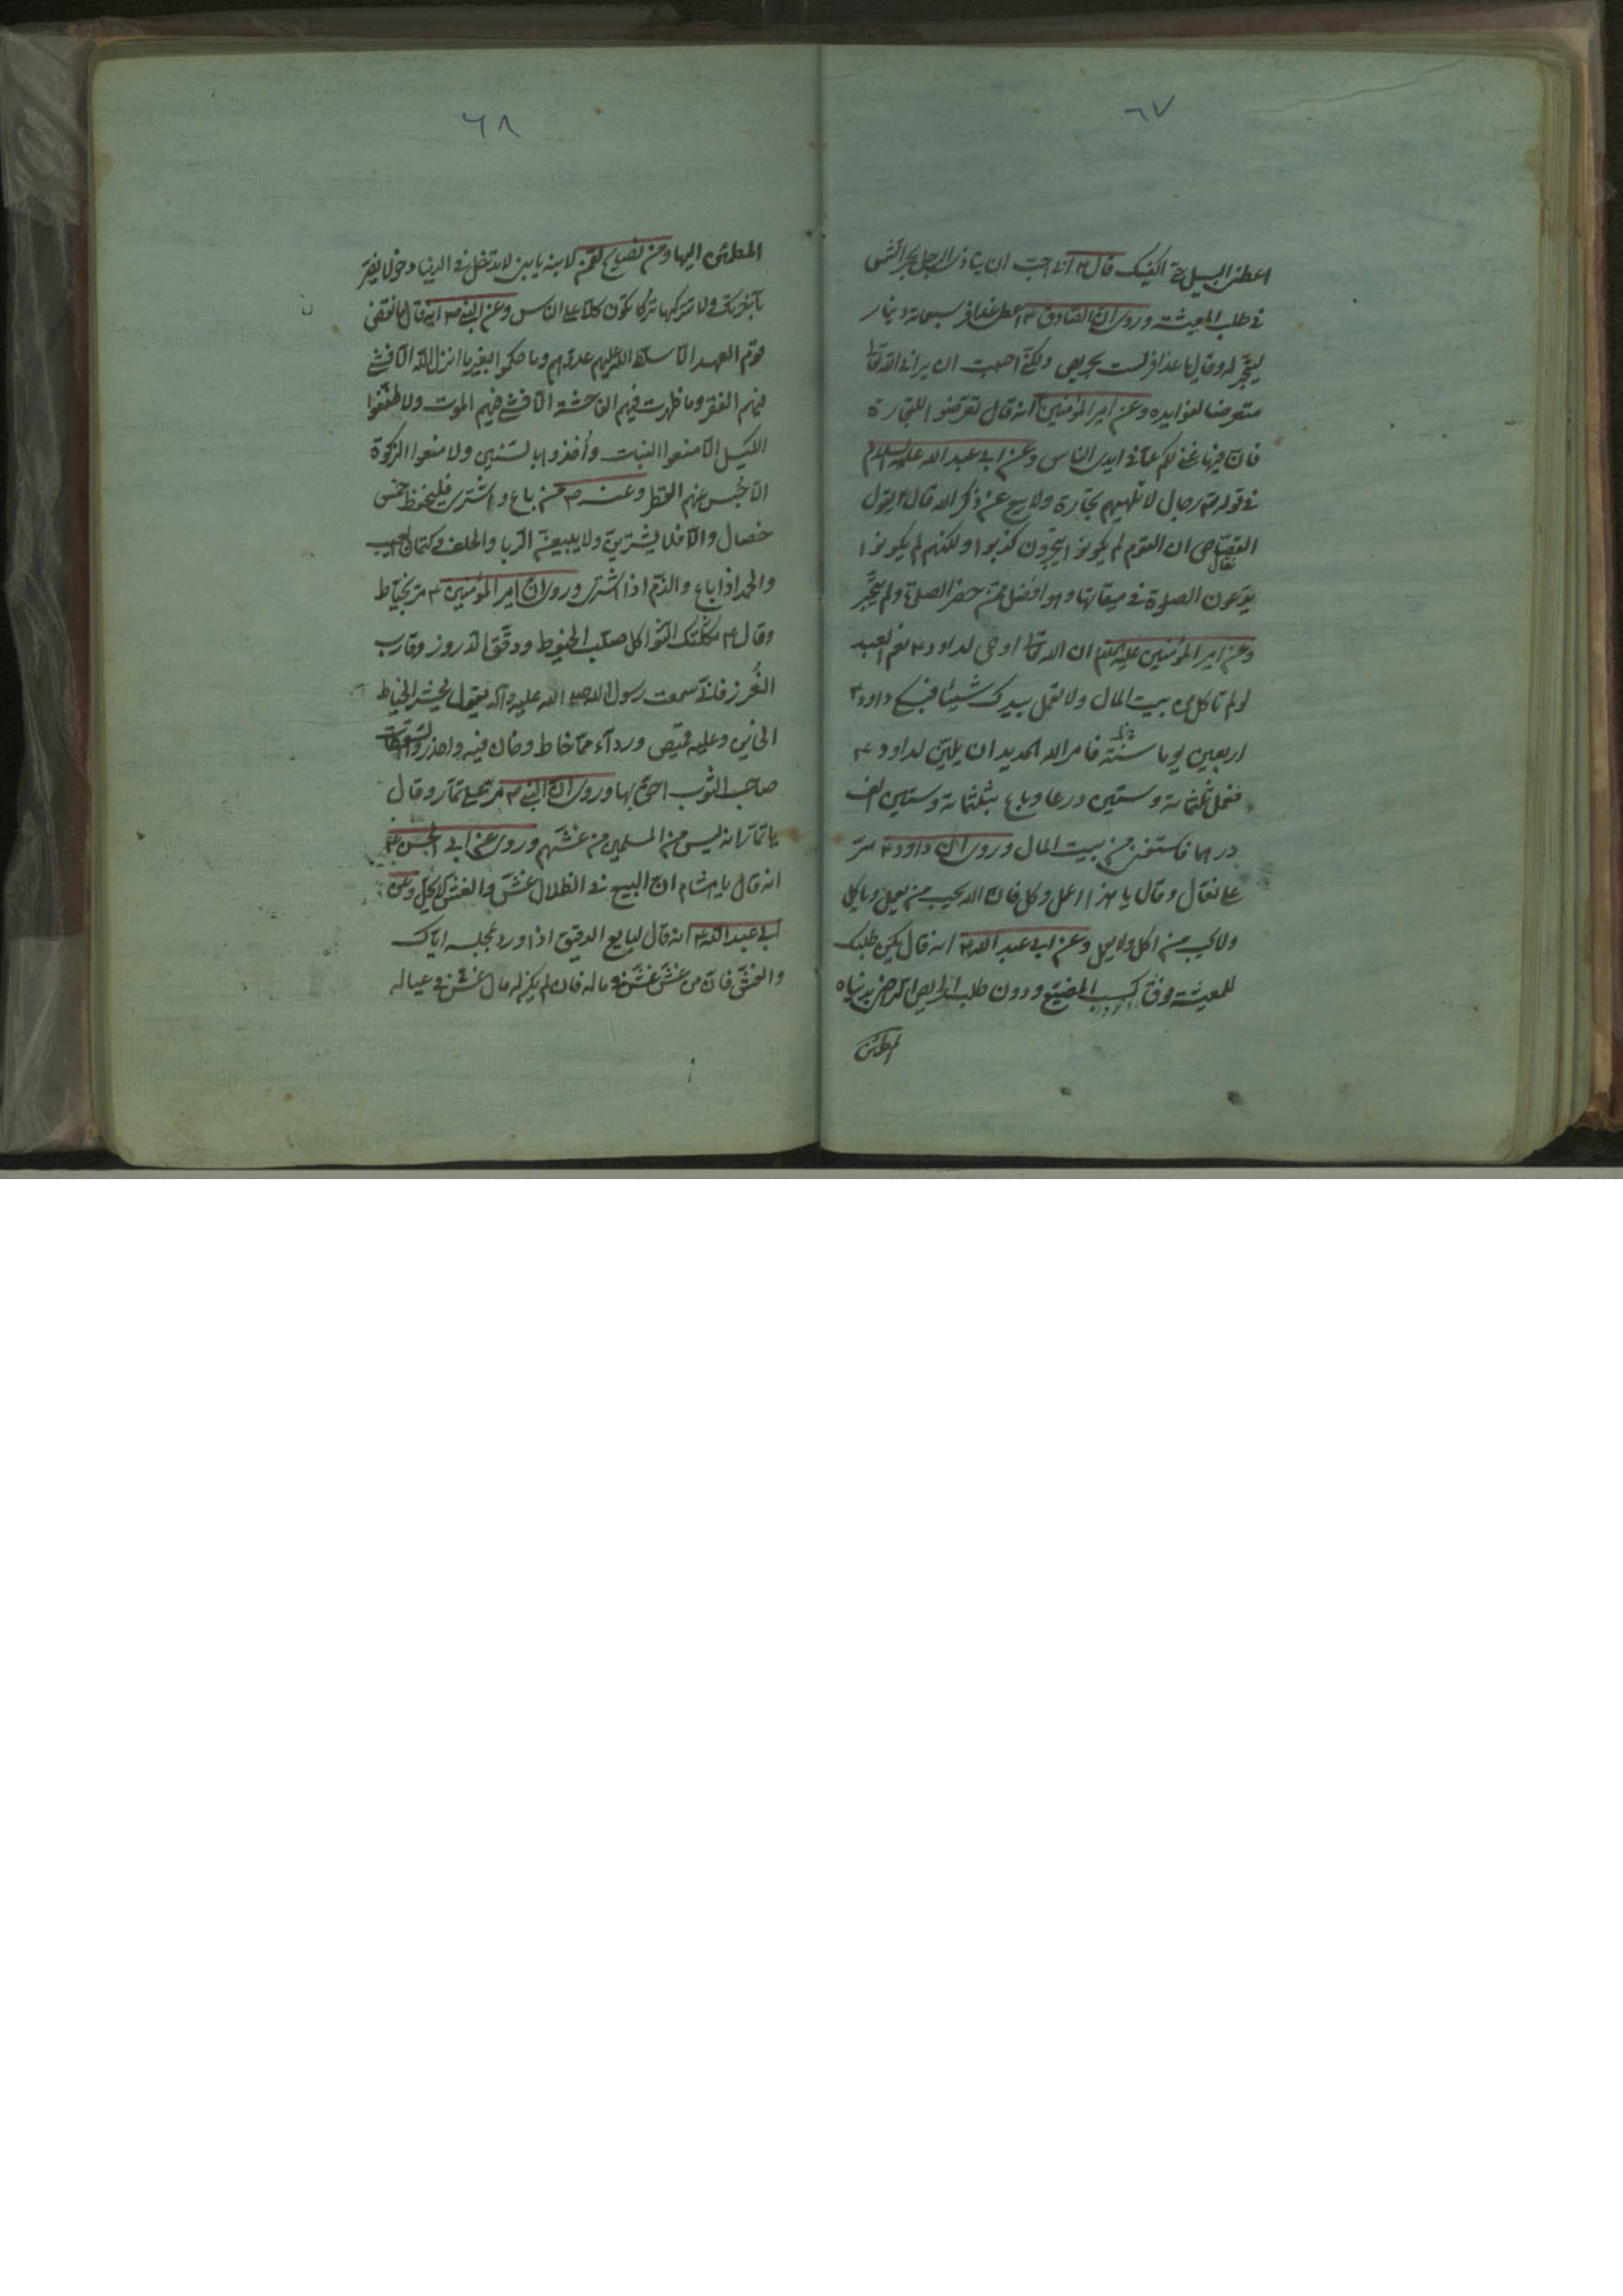 ٦٧
اعطنى البيل حتى اكفيك قال ع انى احب ان يتاذى الرجل بحر الشمس
فى طلب المعيشة وروى ان الصادق ع اعطى عذافر سبعمائة دينار
ليتجر له وقال يا عذافر لست بحريص ولكنى احببت ان يرانى الله تعالى
متعرضا لفوايده وعن امير المؤمنين انه قال تعرضوا للتجارة
فان فيها غنى لكم عما فى ايدى الناس وعن ابى عبد الله عليه السلام
فى قوله رجال لا تلهيهم تجارة ولا بيع عن ذكر الله قال يقول
القصاص ان القوم لم يكونوا يتجرون كذبوا ولكنهم لم يكونوا
يدعون الصلوة فى ميقاتها وهو افضل ممن حضر الصلوة ولم يتجر
وعن امير المؤمنين عليه السلم ان الله تعالى اوحى لداود ع نعم العبد
لو لم تاكل من بيت المال ولا تعمل بيدك شيئا فبكى داود ع
اربعين يوما سنة فامر الله الحديد ان يلين لداود ع
فعمل ثلثمائة وستين درعا وباع بثلثمائة وستين الف
درهما فاستغنى من بيت المال وروى ان داود ع مر
على نعال وقال يا هذا اعمل وكل فان الله يحب من يعمل وياكل
ولا يحب من اكل ولا يعمل وعن ابى عبد الله ع انه قال ليكن طلبك
للمعيشة فوق كسب المضيع ودون طلب الحريص الراضى بدنياه
المطمئن
٦٨
المطمئن اليها ومن نصايح لقمن لابنه يا بنى لا تدخل فى الدنيا دخولا يضر
بآخرتك ولا تتركها تركا تكون كلا على الناس وعن النبى ص انه قال ما نقض
قوم العهد الا سلط الله عليهم عدوهم وما حكموا بغير ما انزل الله الا فشى
فيهم الفقر وما ظهرت فيهم الفاحشة الا فشى فيهم الموت ولا طففوا
الكيل الا منعوا النبات وأخذوا بالسنين ولا منعوا الزكوة
الا حبس عنهم القطر وعنه ص من باع واشترى فليحفظ خمس
خصال والا فلا يشترين ولا يبيعن الربا والحلف وكتمان العيب
والحمد اذا باع والذم اذا اشترى وروى ان امير المؤمنين ع مر بخياط
وقال ع ثكلتك الثواكل صلب الخيوط ودقق الدروز وقارب
الغرز فانى سمعت رسول الله صلى الله عليه وآله يقول يحشر الخياط
الخاين وعليه قميص ورداء مما خاط وخان فيه واحذروا السقطات
صاحب الثوب احق بها وروى ان النبى ص مر على تمار وقال
يا تمار انه ليس من المسلمين من غشهم وروى عن ابى الحسن ع
انه قال يا هشام ان البيع فى الظلال غش والغش لا يحل وعن
ابى عبد الله ع انه قال لبايع الدقيق اذا ورد مجلسه اياك
والغش فان من غش غش فى ماله فان لم يكن له مال غش فى عياله